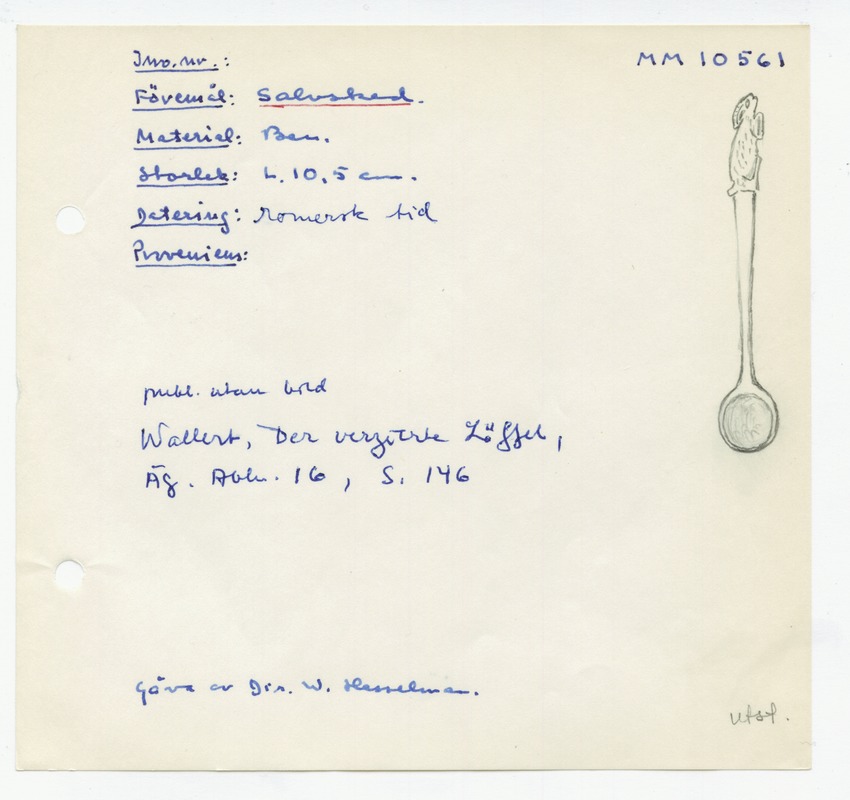 MM 10561
Inv.nr.:
Föremål: Salvsked.
Material: Ben.
Storlek: L. 10,5 cm.
Datering: romersk tid
Proveniens:
publ. utan bild
Wallert, Der verzierte Löffel,
Äg. Abh. 16, S. 146
Gåva av Dir. W. Hesselman.
utst.